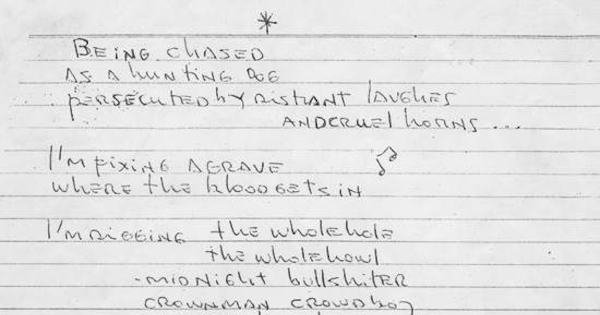 *
BEING CHASED
AS A hUNTING DOG
PERSECUTED by DISTANT LAUGHES
AND CRUEL hORNS ...
I'M FIXING A GRAVE
WhERE ThE blOOD GETS IN
I'M DIGGING ThE WhOlEhOlE
ThE WhOlEhOWl
- MIDNIGhT bullShITER
CROWNMAN CROWDbOY